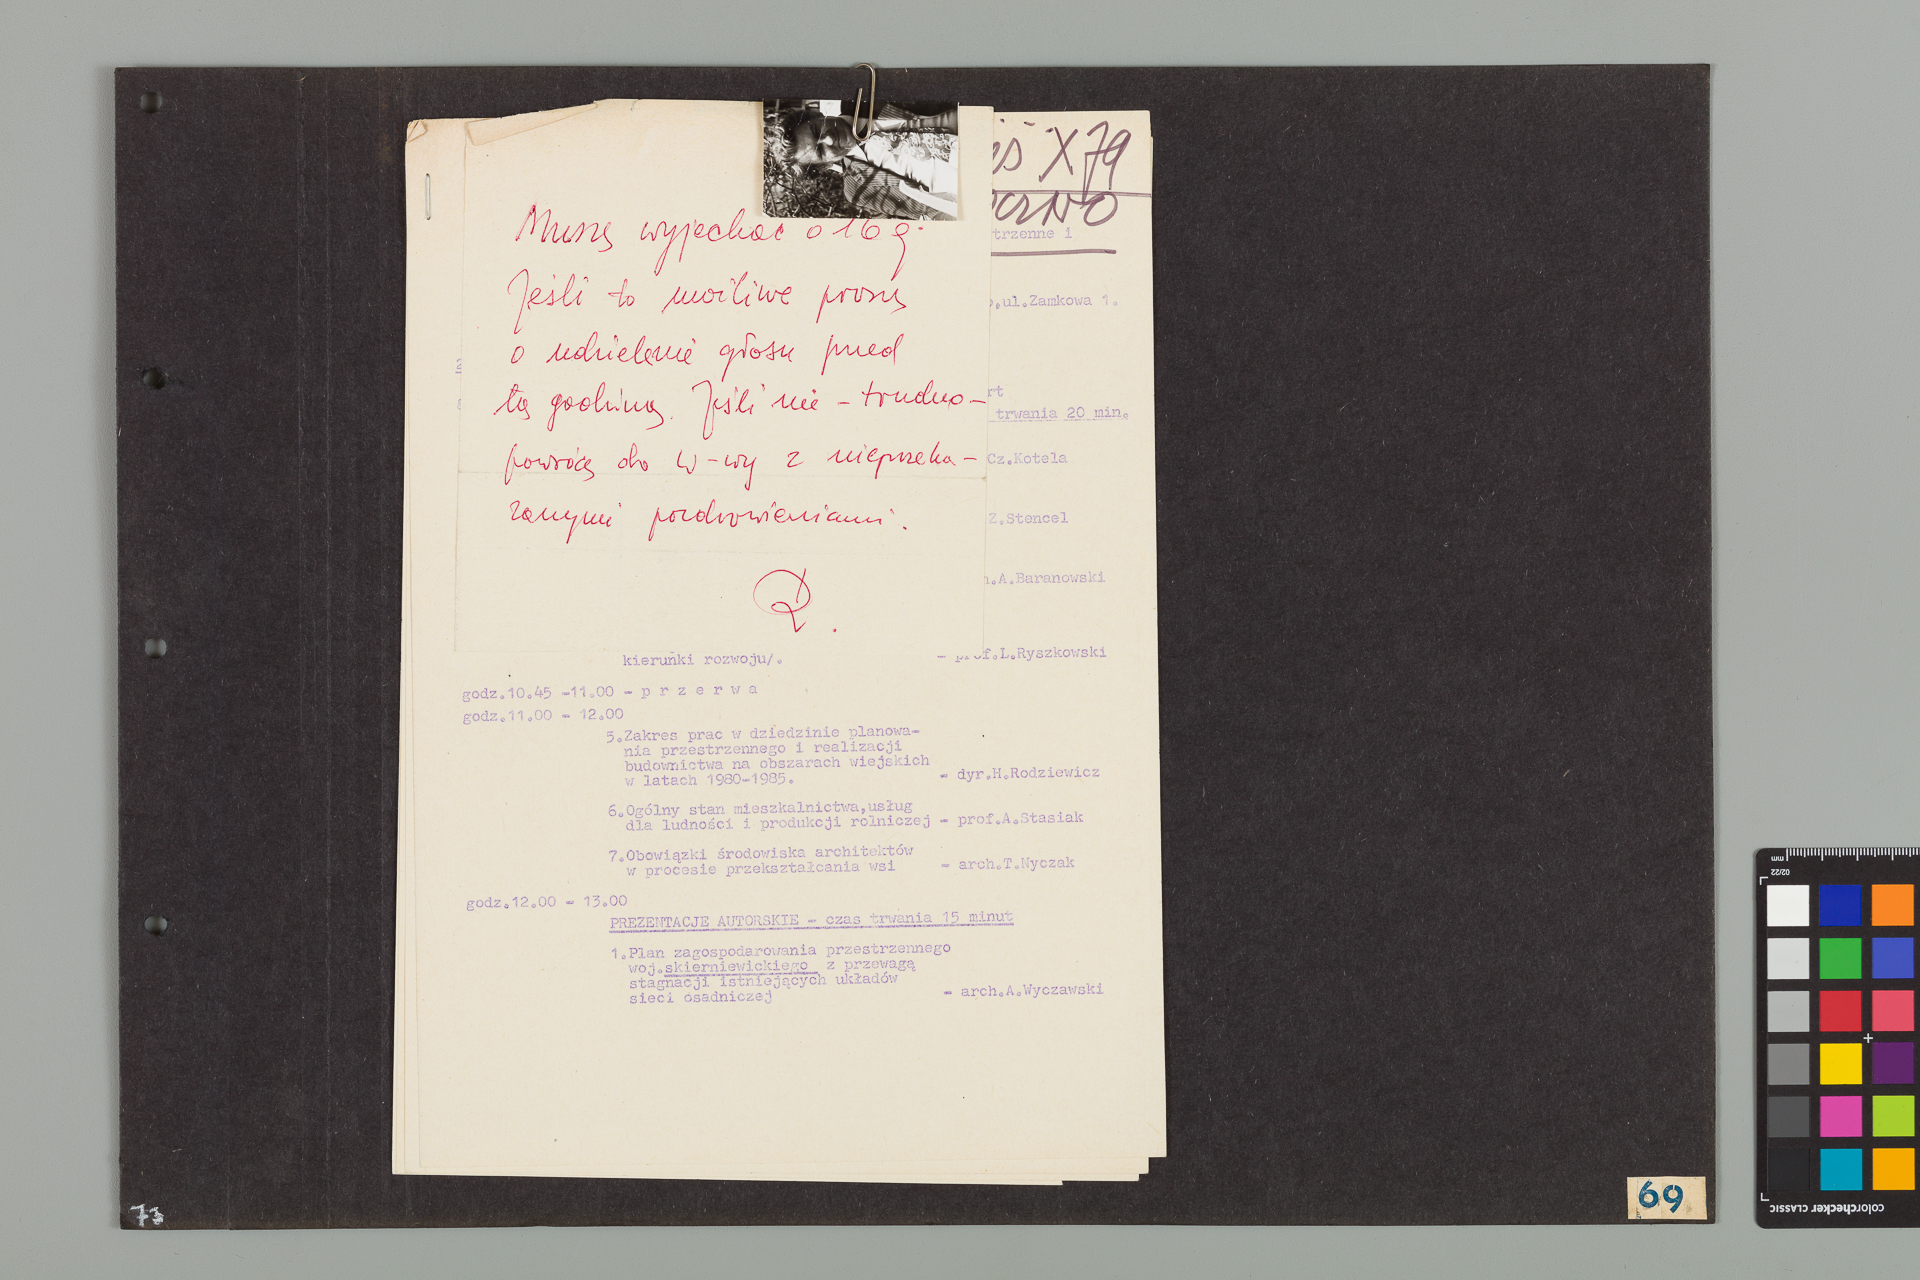 X 79
trzenne i
ul.Zamkowa 1.
Muszę wyjechać o 16 g.
Jeśli to możliwe proszę
o udzielenie głosu przed
tą godziną. Jeśli nie – trudno –
powrócę do W-wy z nieprzeka-
zanymi pozdrowieniami.
trwania 20 min.
Cz.Kotela
Z.Stencel
A.Baranowski
kierunki rozwoju/. - prof.L.Ryszkowski
godz.10.45 -11.00 - p r z e r w a
godz.11.00 - 12.00
5.Zakres prac w dziedzinie planowa-
nia przestrzennego i realizacji
budownictwa na obszarach wiejskich
w latach 1980-1985. - dyr.H.Rodziewicz
6.Ogólny stan mieszkalnictwa,usług
dla ludności i produkcji rolniczej - prof.A.Stasiak
7.Obowiązki środowiska architektów
w procesie przekształcania wsi - arch.T.Nyczak
godz.12.00 - 13.00
PREZENTACJE AUTORSKIE - czas trwania 15 minut
1.Plan zagospodarowania przestrzennego
woj.skierniewickiego z przewagą
stagnacji istniejących układów
sieci osadniczej - arch.A.Wyczawski
73
69
mm
02/22
colorchecker CLASSIC